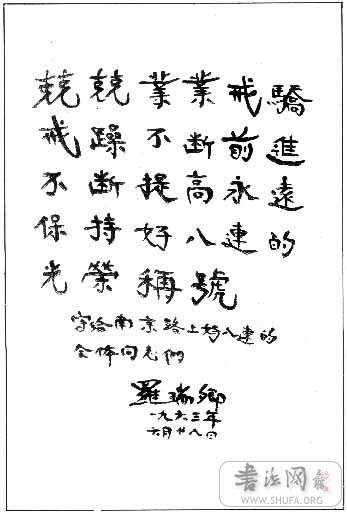 兢兢業業戒驕
戒躁不斷前進
不斷提高永遠
保持好八連的
光榮稱號
写给南京路上好八連的
全体同志們
羅瑞卿
一九六三年
六月廿八日
書法网
WWW.SHUFA.ORG